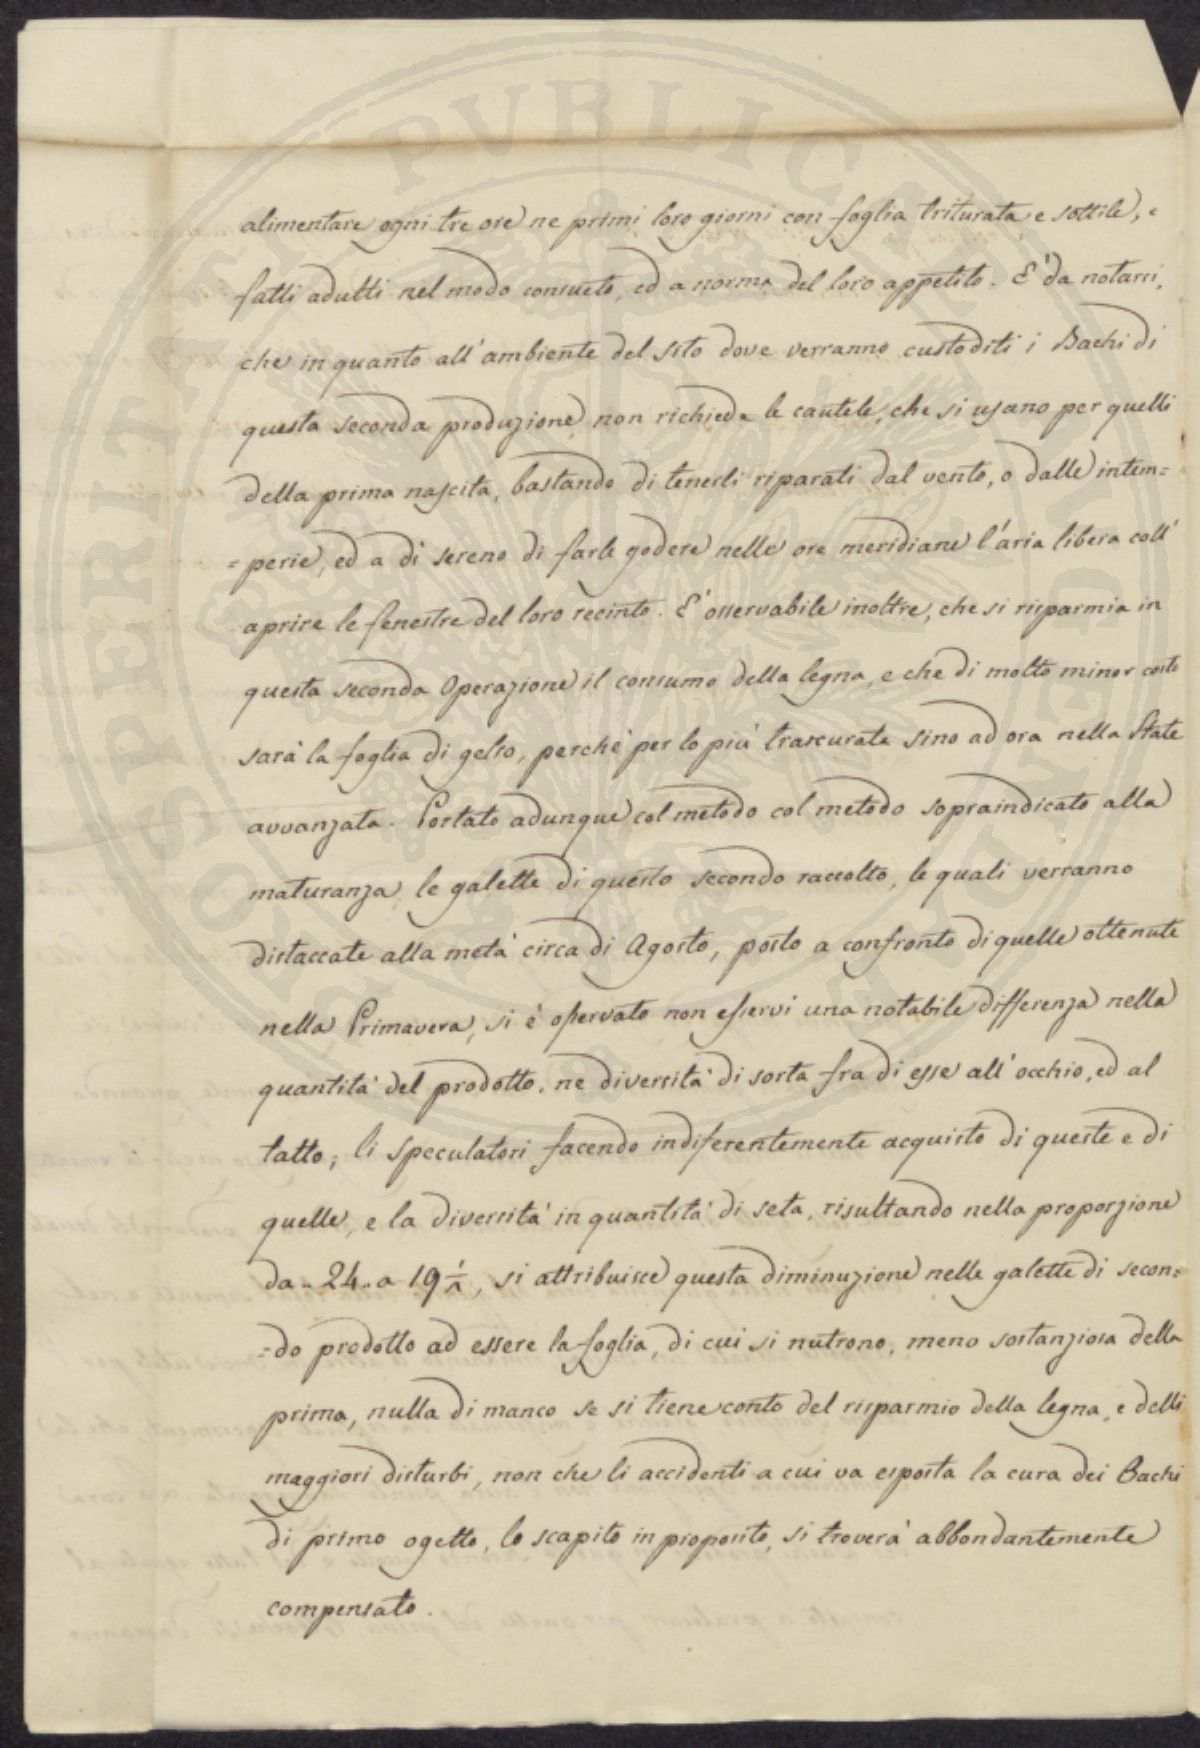 alimentare ogni tre ore ne primi loro giorni con foglia triturata e sottile, e
fatti adulti nel modo consueto, ed a norma del loro appetito. E' da notarsi,
che in quanto all' ambiente del sito dove verranno custoditi i Bachi di
questa seconda produzione, non richiede le cautele, che si usano per quelli
della prima nascita, bastando di tenerli riparati dal vento, o dalle intem=
=perie, ed a dì sereno di farle godere nelle ore meridiane l'aria libera coll'
aprire le fenestre del loro recinto. E' osservabile inoltre, che si risparmia in
questa seconda Operazione il consumo della legna, e che di molto minor costo
sarà la foglia di gelso, perchè per lo più trascurata sino ad ora nella State
avvanzata. Portato adunque col metodo col metodo sopraindicato alla
maturanza, le galette di questo secondo raccolto, le quali verranno
distaccate alla metà circa di Agosto, posto a confronto di quelle ottenute
nella Primavera, si è osservato non esservi una notabile differenza nella
quantità del prodotto, ne diversità di sorta fra di esse all' occhio, ed al
tatto; li speculatori facendo indiferentemente acquisto di queste e di
quelle, e la diversità in quantità di seta, risultando nella proporzione
da.. 24.. a 19 ½, si attribuisce questa diminuzione nelle galette di secon=
=do prodotto ad essere la foglia, di cui si nutrono, meno sostanziosa della
prima, nulla di manco se si tiene conto del risparmio della legna, e delli
maggiori disturbi, non che li accidenti a cui va esposta la cura dei Bachi
di primo ogetto, lo scapito in proposito, si troverà abbondantemente
compensato.
PROSPERITATI PVBLICAE AVGENDAE